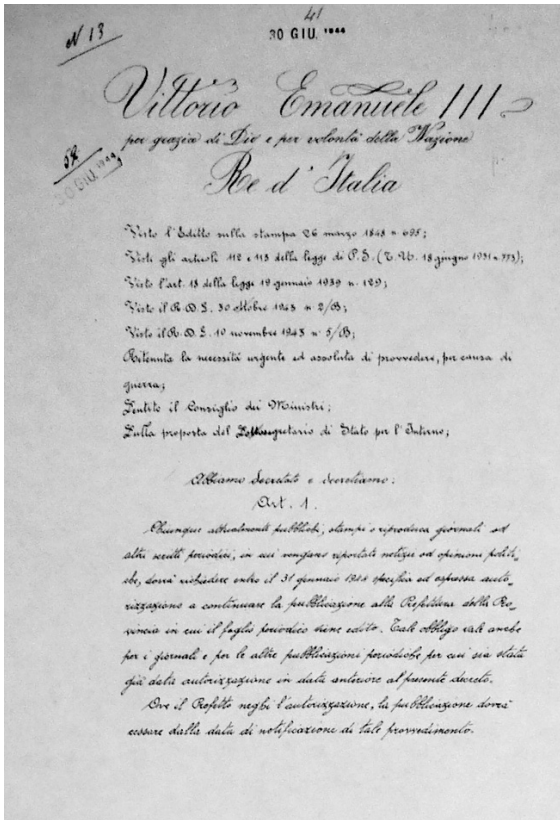 N 13
41
30 GIU. 1944
Vittorio Emanuele III
per grazia di Dio e per volontà della Nazione
58
30 GIU. 1944
Re d'Italia
Visto l'Editto sulla stampa 26 marzo 1848 n. 695;
Visti gli articoli 112 e 113 della legge di P. S. (T. U. 18 giugno 1931 n. 773);
Visto l'art. 18 della legge 19 gennaio 1939 n. 129;
Visto il R. D. L. 30 ottobre 1943 n. 2/B;
Visto il R. D. L. 10 novembre 1943 n. 5/B;
Ritenuta la necessità urgente ed assoluta di provvedere, per causa di
guerra;
Sentito il Consiglio dei Ministri;
Sulla proposta del Sottosegretario di Stato per l'Interno;
Abbiamo decretato e decretiamo:
Art. 1.
Chiunque attualmente pubblichi, stampi o riproduca giornali od
altri scritti periodici, in cui vengano riportate notizie od opinioni politi-
che, dovrà richiedere entro il 31 gennaio 1944 specifica ed espressa auto-
rizzazione a continuare la pubblicazione alla Prefettura della Pro-
vincia in cui il foglio periodico viene edito. Tale obbligo vale anche
per i giornali e per le altre pubblicazioni periodiche per cui sia stata
già data autorizzazione in data anteriore al presente decreto.
Ove il Prefetto neghi l'autorizzazione, la pubblicazione dovrà
cessare dalla data di notificazione di tale provvedimento.